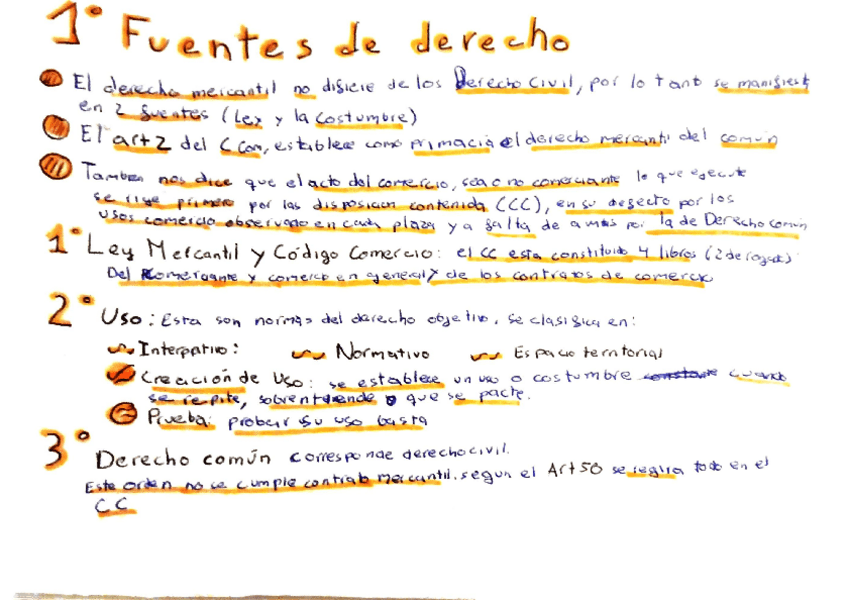 1° Fuentes de derecho
El derecho mercantil no difiere de los Derecho Civil, por lo tant se manifiest
en 2 fuentes (Ley y la costumbre)
El art 2 del C Com, establece como primacia el derecho mercantil del común
Tambien nos dice que el acto del comercio, sea c no comerciante lo que ejecute
se rige primero por las disposicion contenida (CCC), en su defecto por los
usos comercio observado en cada plaza y a falta de ambas por la de Derecho común
1° Ley Mercantil y Código Comercio: el CC esta constituido 4 libros (2 derogado)
Del Comerciante y comercio en general y de los contratos de comercio
2° Uso: Esta son normas del derecho objetivo, se clasifica en:
Interpativo: Normativo Espacio territorial
Creación de Uso: se establece un uso o costumbre constante cuando
se repite, sobrentiende o que se pacte.
Prueba: probar su uso basta
3° Derecho común corresponde derecho civil.
Este orden no se cumple contrato mercantil. segun el Art 50 se regira todo en el
CC